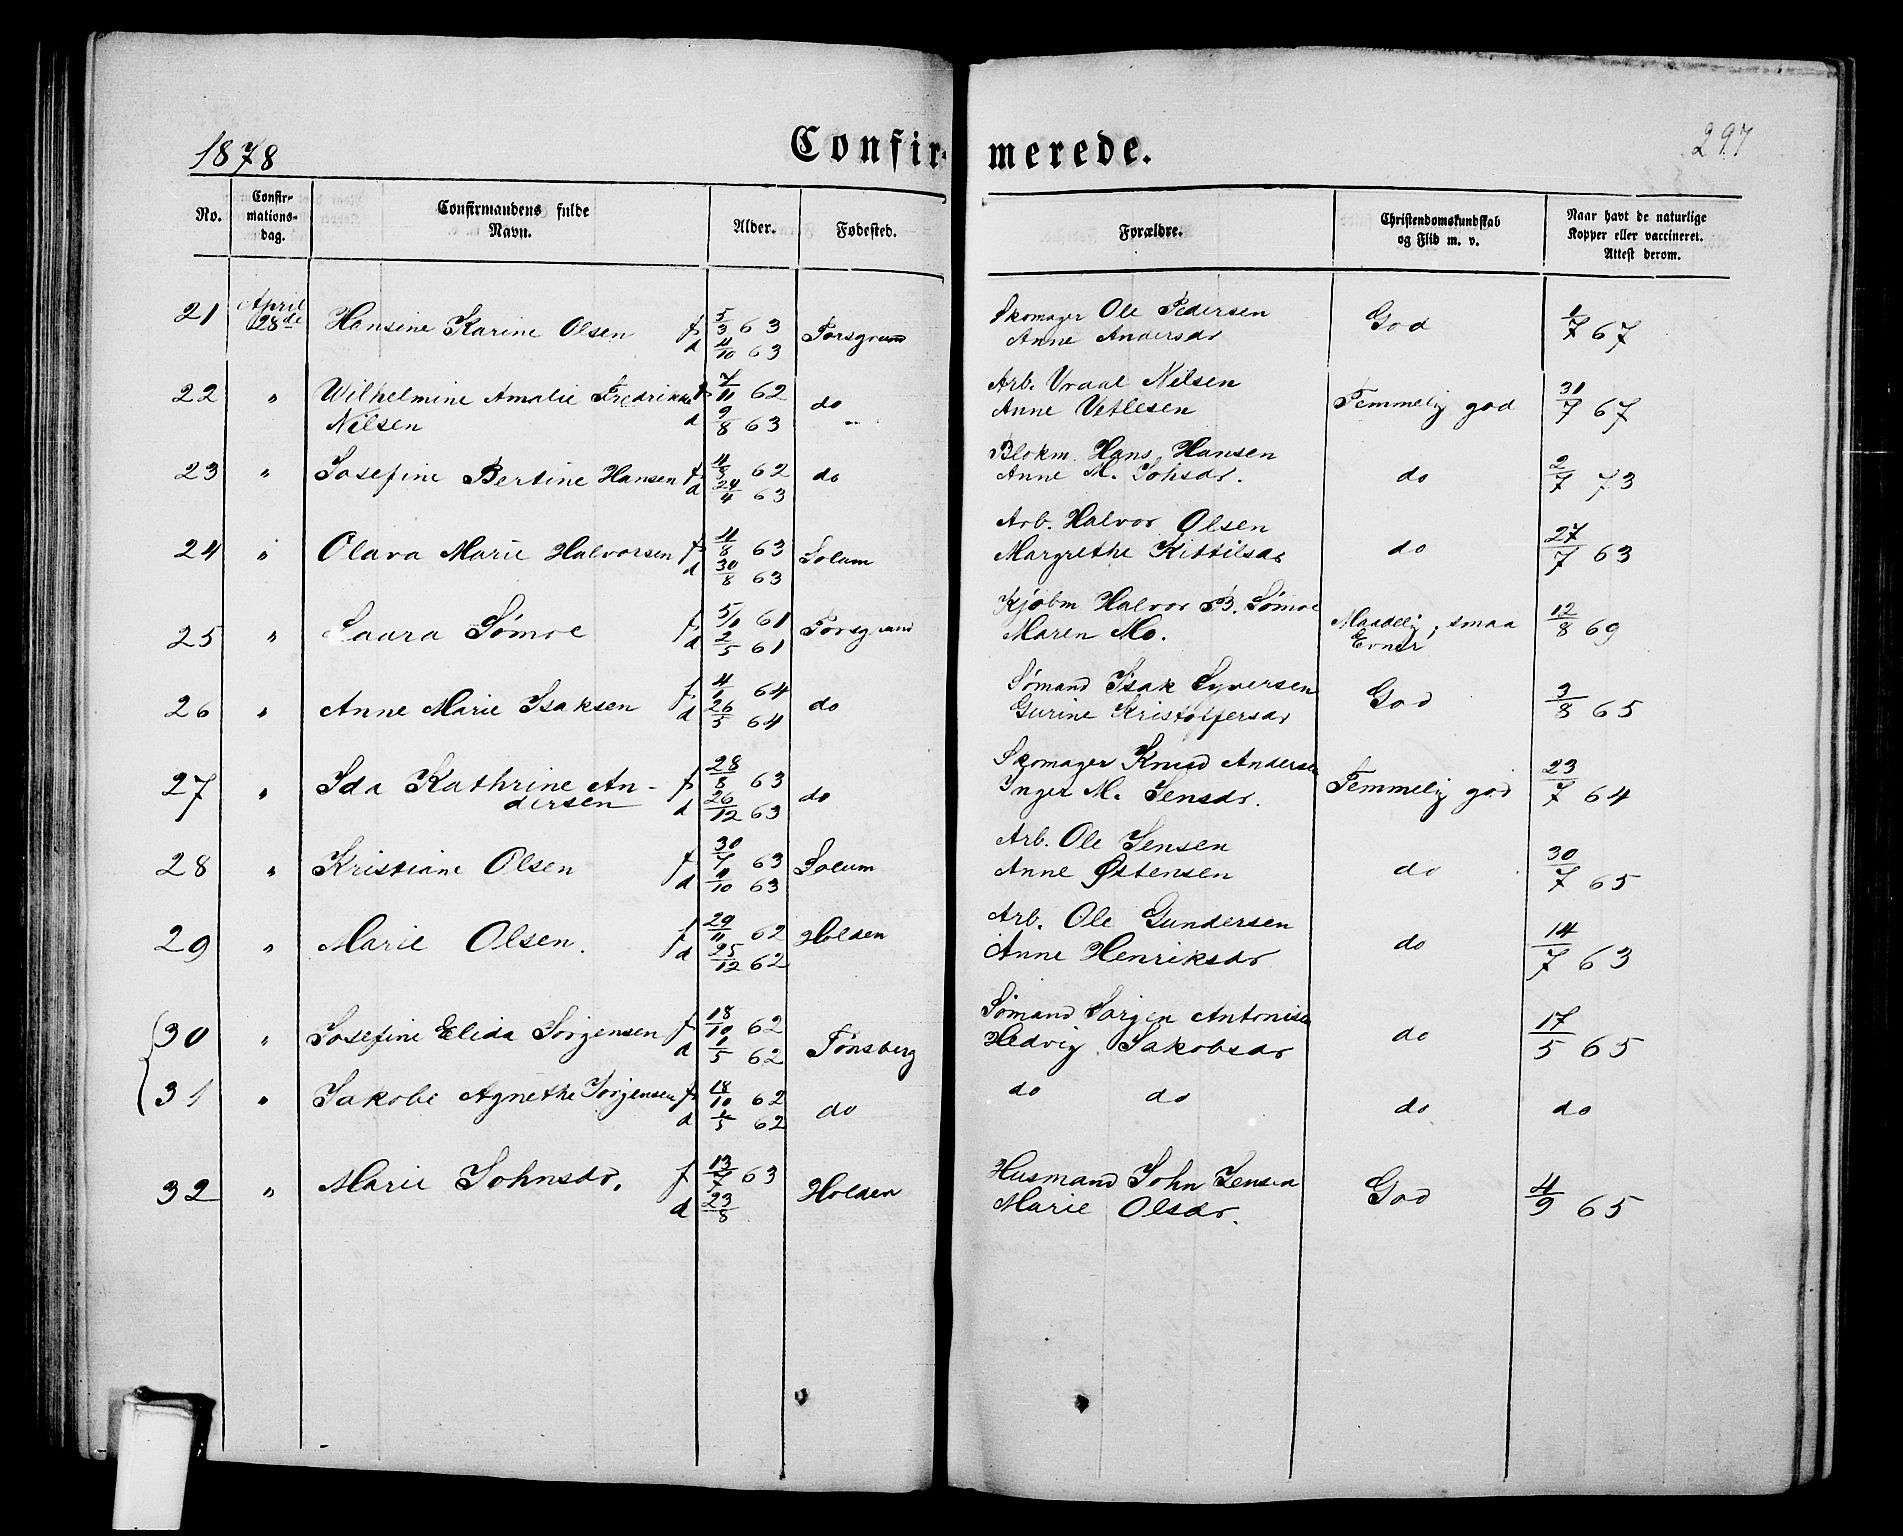 1878
Confirmerede.
297
No.
Confirmations-dag.
Confirmandens fulde Navn.
Alder.
Fødested.
Forældre.
Christendomskundskab og Flid m. v.
Naar havt de naturlige Kopper eller vaccineret. Attest derom.
21 April 28de Hansine Karine Olsen f 5/3 63 Porsgrund Skomager Ole Pedersen God 1/7 67
d 4/10 63 Anne Andersdr
22 " Wilhelmine Amalie Fredrikke f 7/11 62 do Arb. Vraal Nilsen Temmelig god 31/7 67
Nilsen d 9/8 63 Anne Vetlesen
23 " Josefine Bertine Hansen f 62 do Blokm. Hans Hansen do 2/7 73
d 24/4 63 Anne M. Johsdr.
24 " Olava Marie Halvorsen f 4/8 63 Solum Arb. Halvor Olsen do 27/7 63
d 30/8 63 Margrethe Kittilsdr
25 " Laura Sømoe f 5/10 61 Porsgrund Kjøbm Halvor B. Sømoe Maadelig, smaa 12/8 69
d 2/5 61 Maren Mo. Evner
26 " Anne Marie Isaksen f. 4/1 64 do Sømand Isak Syversen God 3/8 65
d 26/5 64 Gurine Kristoffersdr
27 " Ida Kathrine An- f 28/8 63 do Skomager Knud Andersen Temmelig god 23/7 64
dersen d 26/12 63 Inger M. Jensdr.
28 " Kristiane Olsen f 30/7 63 Solum Arb. Ole Jensen do 30/7 65
d 11/10 63 Anne Østensen
29 " Marie Olsen. f 29/11 62 Holden Arb. Ole Gundersen do 14/7 63
d 25/12 62 Anne Henriksdr
30 " Josefine Elida Jørgensen f 18/10 62 Tønsberg Sømand Jørgen Antonisen do 17/5 65
d 1/5 62 Hedvig Jakobsdr
31 " Jakobe Agnethe Jørgensen f 18/10 62 do do do do do
d 1/5 62
32 " Marie Johnsdr. f 13/7 63 Holden Husmand John Jensen God 4/9 65
d 23/8 Marie Olsdr.